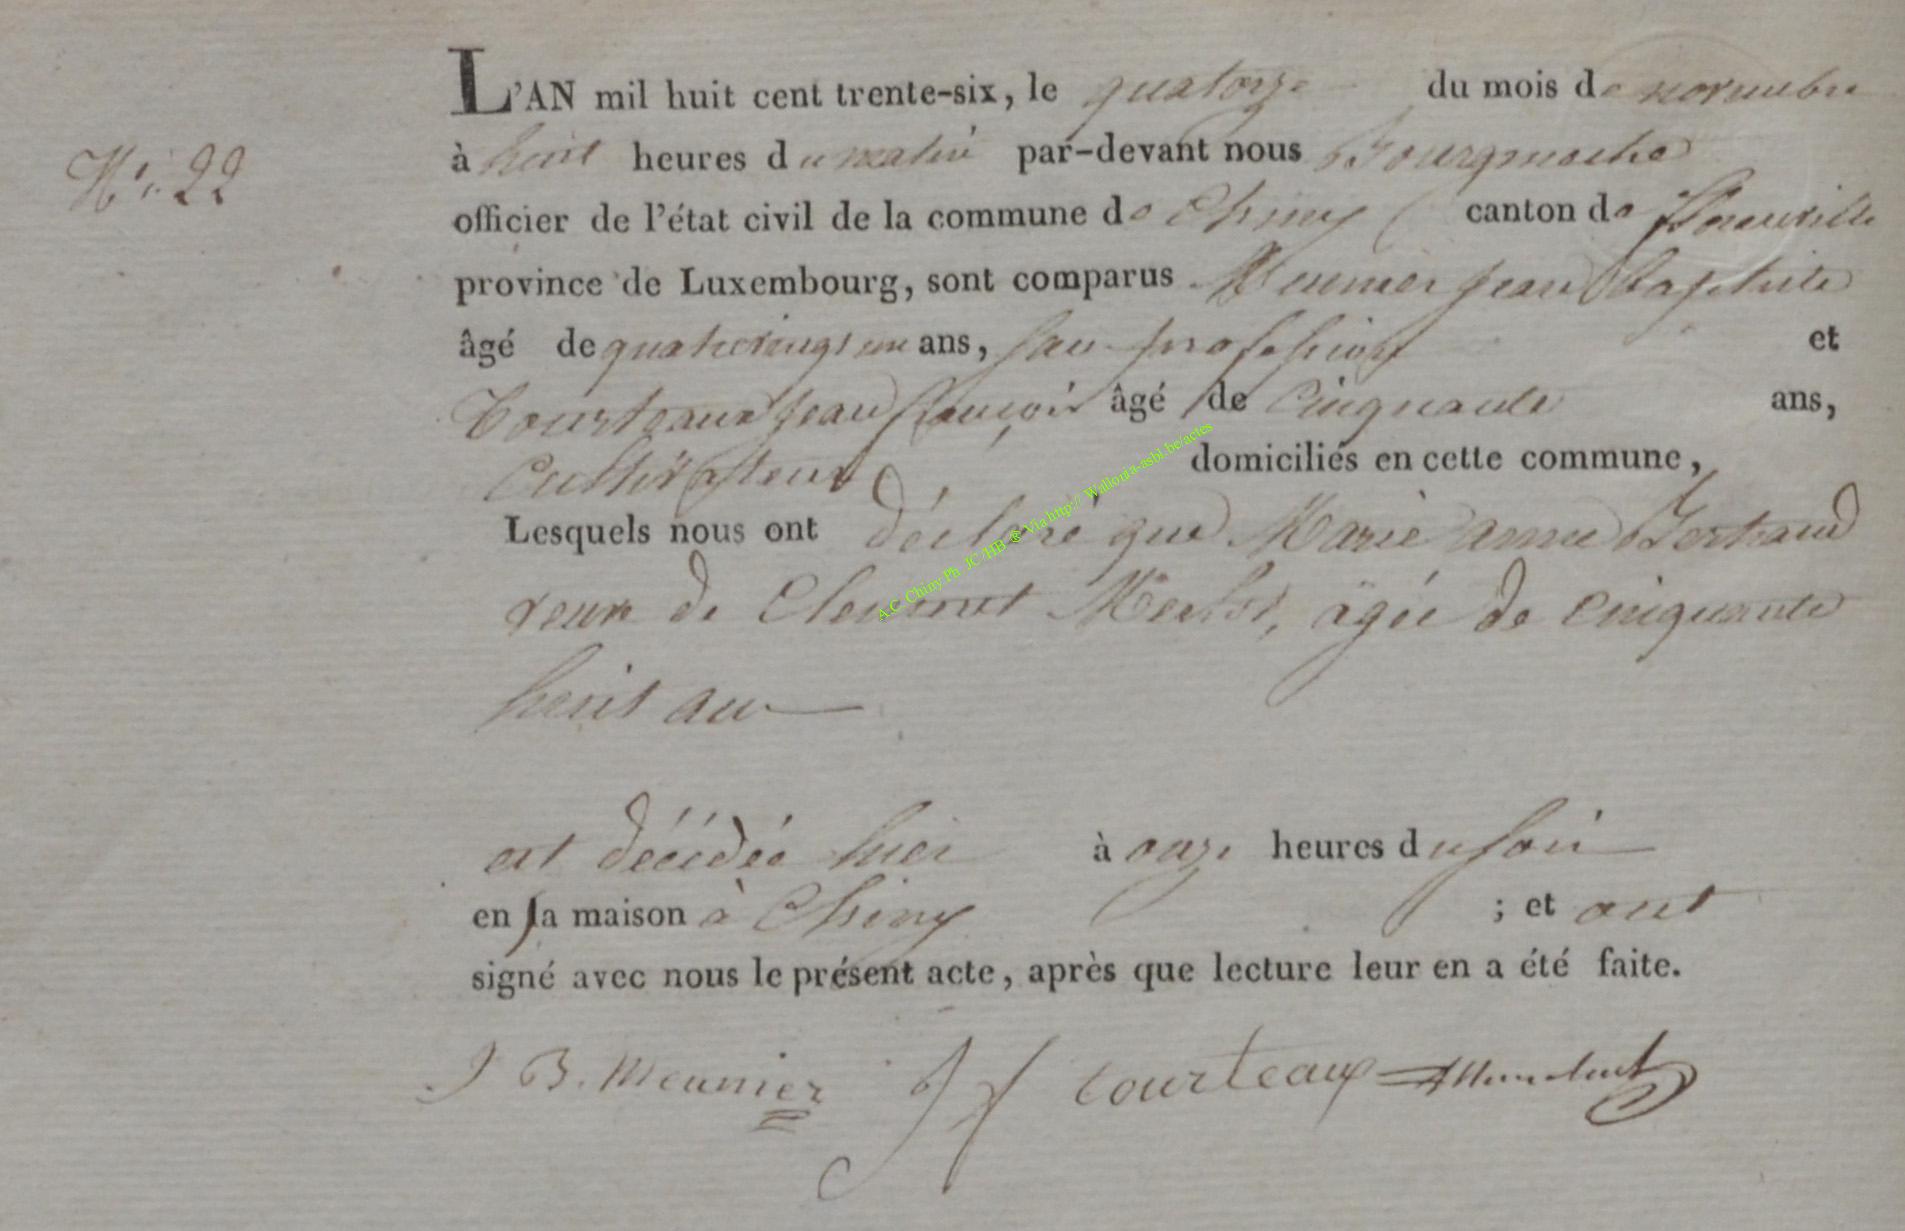 L'AN mil huit cent trente-six, le quatorze du mois de novembre
N° 22
à huit heures du matin par-devant nous Bourgmestre
officier de l'état civil de la commune de Chiny canton de Florenville
province de Luxembourg, sont comparus Meunier Jean Baptiste
âgé de quatrevingt un ans, sans profession et
Courteaux Jean françois âgé de Cinquante ans,
Cultivateur domiciliés en cette commune,
Lesquels nous ont déclaré que Marie anne
veuve de Clement Merlot, agée de Cinquante
huit ans
est décédée hier à onze heures du soir
en sa maison à Chiny ; et ont
signé avec nous le présent acte, après que lecture leur en a été faite.
J B. Meunier J f courteaux
A.C. Chiny Ph JC/HB ® Via http:// Wallonia-asbl.be/actes